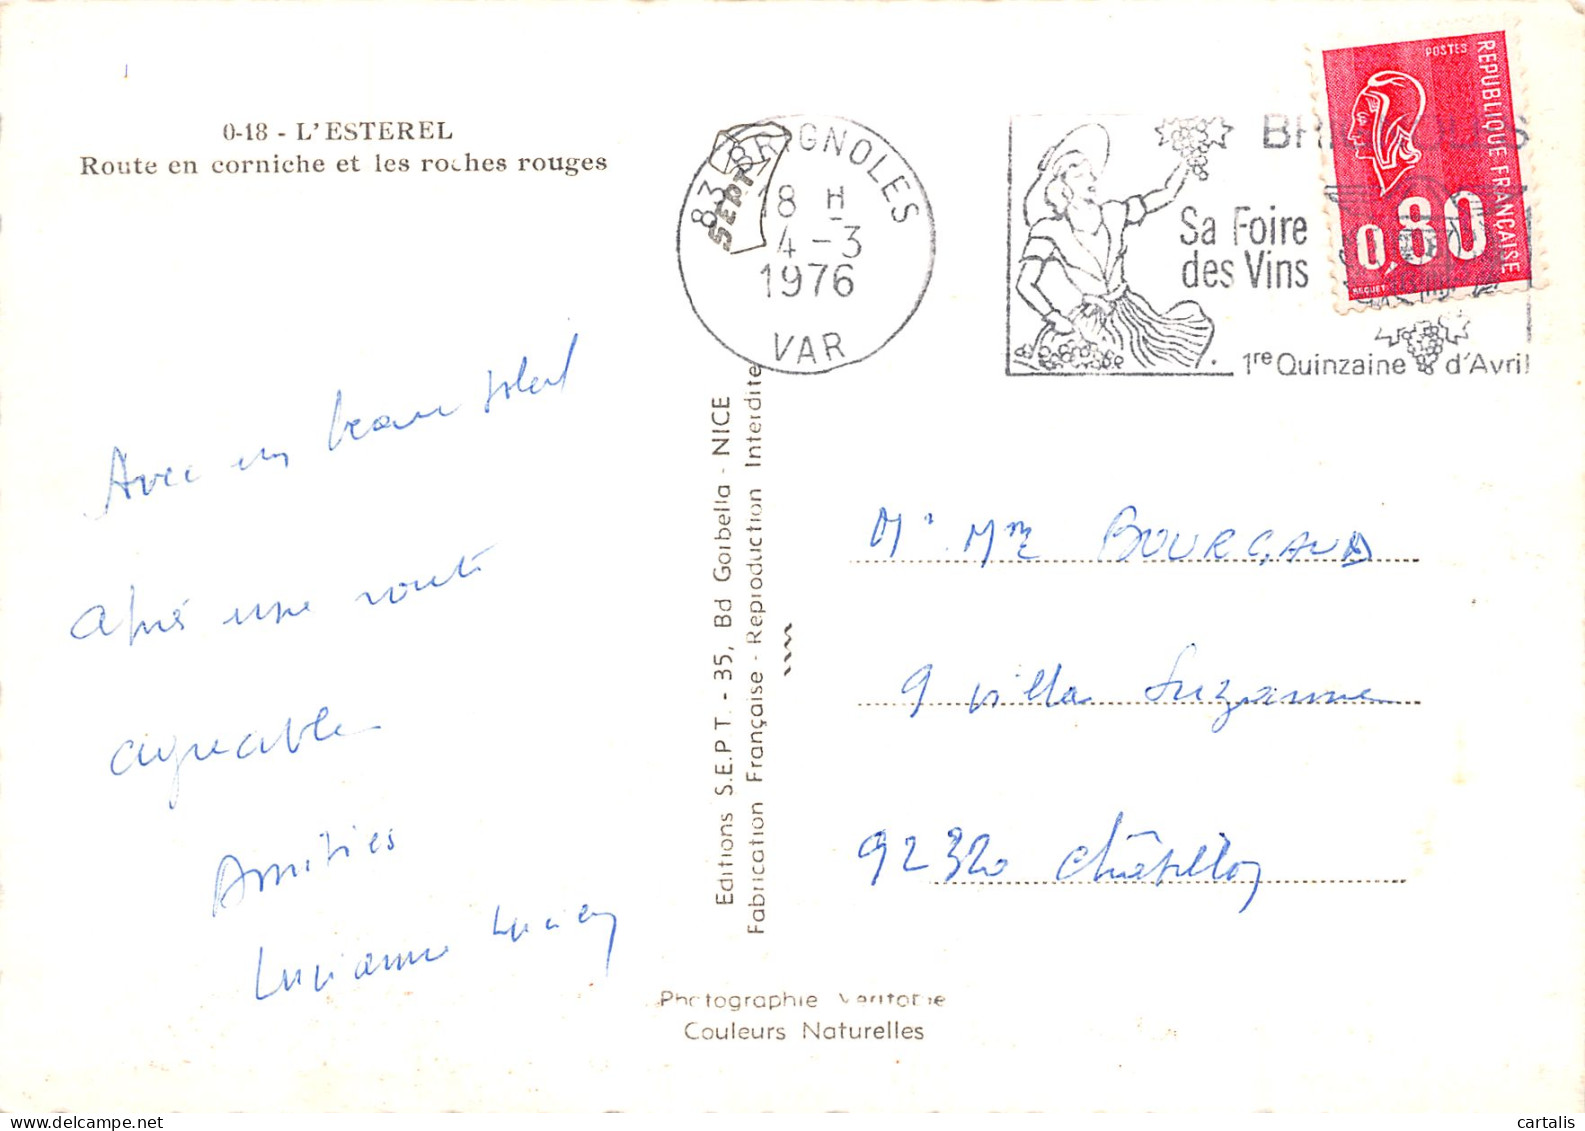 0-18 - L'ESTEREL
Route en corniche et les roches rouges
83 BRIGNOLES
SEPT
18 H
4-3
1976
VAR
Sa Foire
des Vins
1re Quinzaine d'Avril
POSTES
REPUBLIQUE FRANÇAISE
0,80
BEQUET
Avec un beau soleil
après une route
agréable
Amitiés
Lucianne
Editions S.E.P.T. - 35, Bd Gorbella - NICE
Fabrication Française - Reproduction Interdite
Mr Mme BOURGAUD
9 villa Suzanne
92320 Châtillon
Photographie Véritable
Couleurs Naturelles
cartalis